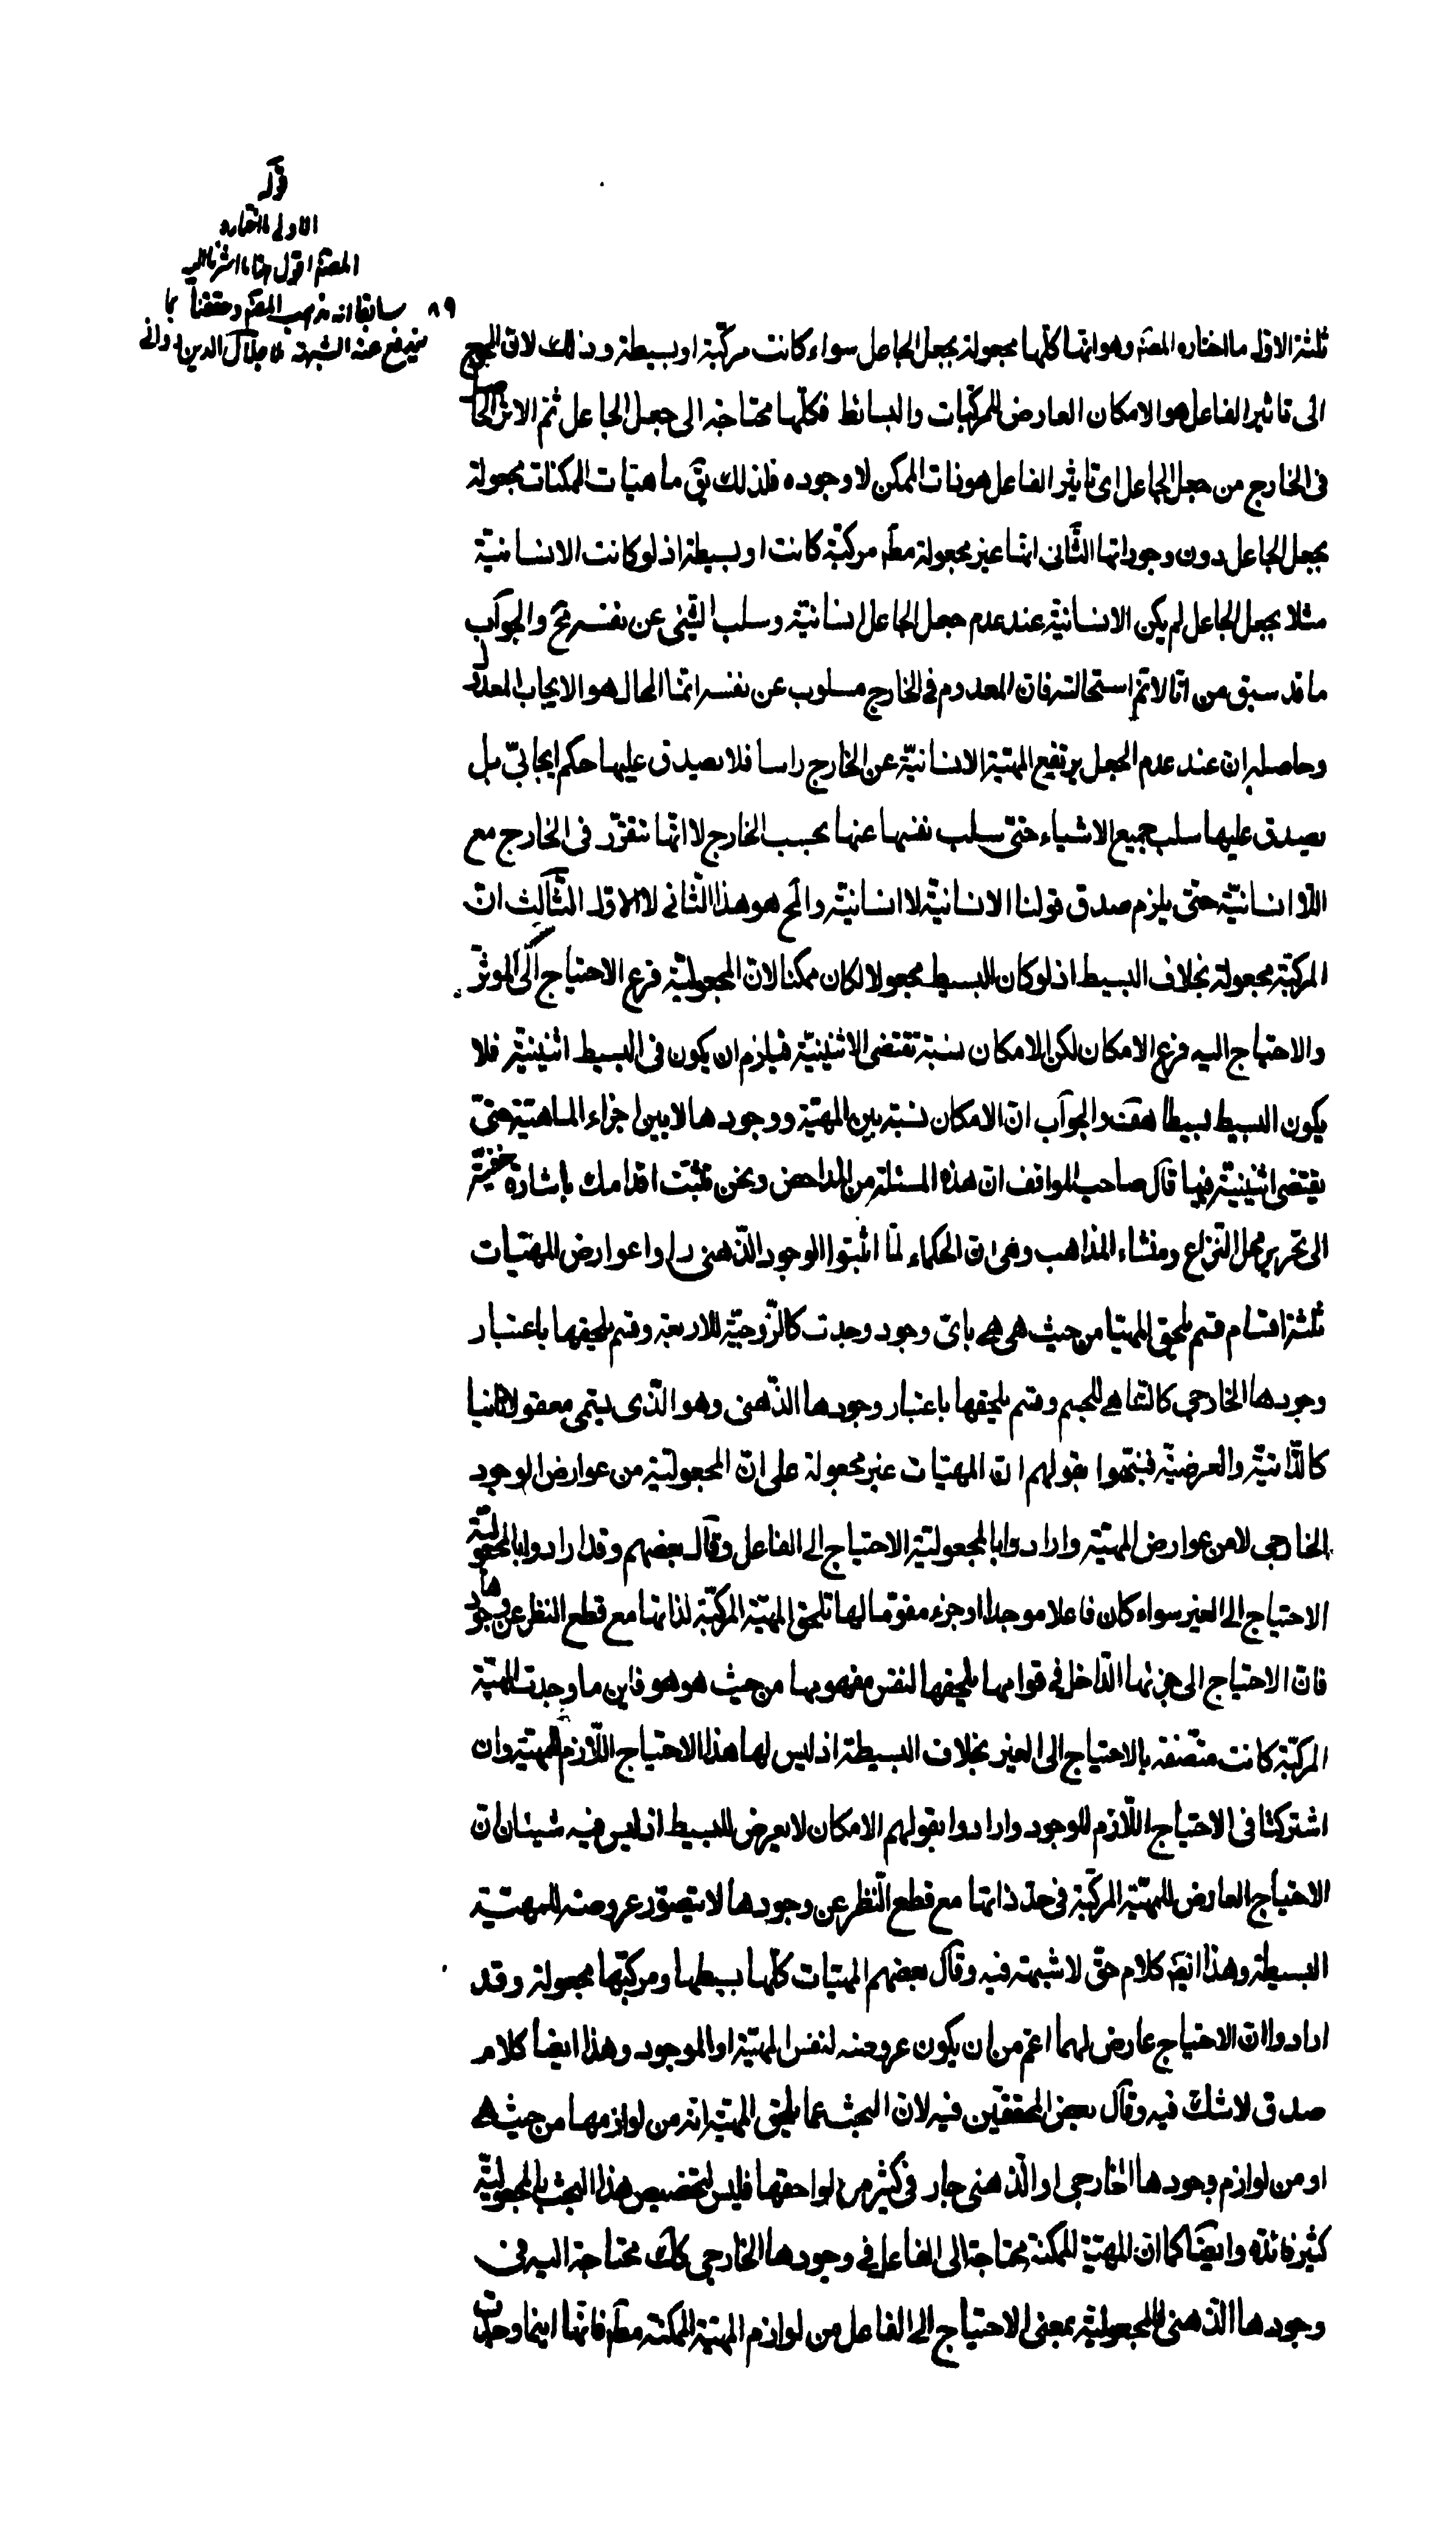 قوله
الاولى ما اختاره
المصنم اقول هذا ما اشرنا اليه
٨٩ سابقا انه مذهب المصم وحققنا بما
يندفع عنه الشبهة ملا جلال الدين دوانى
ثلثة الاول ما اختاره المصنم وهو انها كلها مجعولة بجعل الجاعل سواء كانت مركبة او بسيطة وذلك لان المحوج
الى تاثير الفاعل هو الامكان العارض للمركبات والبسائط فكلها محتاجة الى جعل الجاعل ثم الاثر الحاصل
فى الخارج من جعل الجاعل اى تاثير الفاعل هو ذات الممكن لا وجوده فلذلك يق ماهيات الممكنات مجعولة
بجعل الجاعل دون وجوداتها الثانى انها غير مجعولة مطم مركبة كانت او بسيطة اذ لو كانت الانسانية
مثلا بجعل الجاعل لم يكن الانسانية عند عدم جعل الجاعل انسانية وسلب الشئ عن نفسه مح والجواب
ما قد سبق من انا لا نم استحالته فان المعدوم فى الخارج مسلوب عن نفسه انما المحال هو الايجاب المعدول
وحاصله ان عند عدم الجعل يرتفع المهية الانسانية عن الخارج راسا فلا يصدق عليها حكم ايجابى بل
يصدق عليها سلب جميع الاشياء حتى سلب نفسها عنها بحسب الخارج لا انها تتقرر فى الخارج مع
اللاانسانية حتى يلزم صدق قولنا الانسانية لا انسانية والمح هو هذا الثانى لا الاول الثالث ان
المركبة مجعولة بخلاف البسيط اذ لو كان البسيط مجعولا لكان ممكنا لان المجعولية فرع الاحتياج الى الموثر
والاحتياج اليه فرع الامكان لكن الامكان نسبة تقتضى الاثنينية فيلزم ان يكون فى البسيط اثنينية فلا
يكون البسيط بسيطا هف والجواب ان الامكان نسبة بين المهية ووجودها لا بين اجزاء الماهية حتى
يقتضى اثنينية فيها قال صاحب المواقف ان هذه المسئلة من المداحض ونحن نثبت اقدامك باشارة خفية
الى تحرير محل النزاع ومنشاء المذاهب وهى ان الحكماء لما اثبتوا الوجود الذهنى راوا عوارض المهيات
ثلثة اقسام قسم يلحق المهيا من حيث هى هى باى وجود وجدت كالزوجية للاربعة وقسم يلحقها باعتبار
وجودها الخارجى كالتناهى للجسم وقسم يلحقها باعتبار وجودها الذهنى وهو الذى يسمى معقولا ثانيا
كالذاتية والعرضية فنبهوا بقولهم ان المهيات غير مجعولة على ان المجعولية من عوارض الوجود
الخارجى لا من عوارض المهية وارادوا بالمجعولية الاحتياج الى الفاعل وقال بعضهم وقد ارادوا بالمجعولية
الاحتياج الى الغير سواء كان فاعلا موجدا او جزء مقوما لها تلحق المهية المركبة لذاتها مع قطع النظر عن وجودها
فان الاحتياج الى جزئها الداخل فى قوامها يلحقها لنفس مفهومها من حيث هو هو فاين ما وجدت المهية
المركبة كانت متصفة بالاحتياج الى الغير بخلاف البسيطة اذ ليس لها هذا الاحتياج اللازم للمهية وان
اشتركتا فى الاحتياج اللازم للوجود وارادوا بقولهم الامكان لا يعرض للبسيط اذ ليس فيه شيئان ان
الاحتياج العارض للمهية المركبة فى حد ذاتها مع قطع النظر عن وجودها لا يتصور عروضه للمهية
البسيطة وهذا ايضم كلام حق لا شبهة فيه وقال بعضهم المهيات كلها بسيطها ومركبها مجعولة وقد
ارادوا ان الاحتياج عارض لهما اعم من ان يكون عروضه لنفس المهية او الموجود وهذا ايضا كلام
صدق لا شك فيه وقال بعض المحققين فيه لان البحث عما يلحق المهية انه من لوازمها من حيث هى
او من لوازم وجودها الخارجى او الذهنى جار فى كثير من لواحقها فليس لتخصيص هذا البحث بالمجعولية
كثير فائدة وايضا كما ان المهية الممكنة محتاجة الى الفاعل فى وجودها الخارجى كك محتاجة اليه فى
وجودها الذهنى فالمجعولية بمعنى الاحتياج الى الفاعل من لوازم المهية الممكنة مطم فانها اينما وجدت